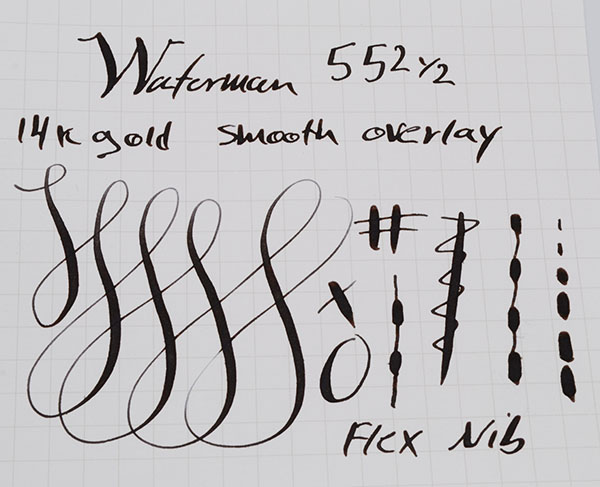 Waterman 552½
14k gold smooth overlay
# x
Flex Nib